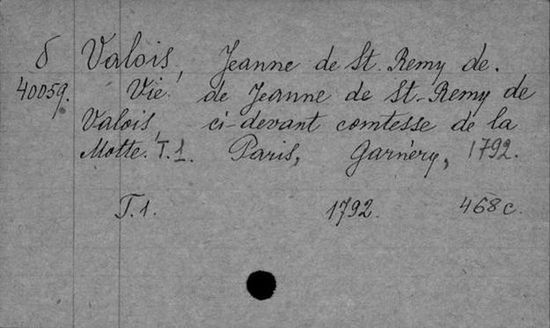 δ Valois, Jeanne de St. Remy de.
40059. Vie de Jeanne de St-Remy de
Valois, ci-devant comtesse de la
Motte. T.1. Paris, Garnéry, 1792.
T.1. 1792. 468 c.